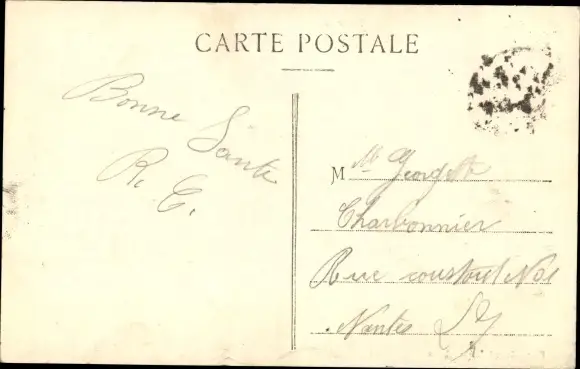 CARTE POSTALE
Bonne Santé
R. C.
M Georgette
Charbonnier
Rue
Nantes